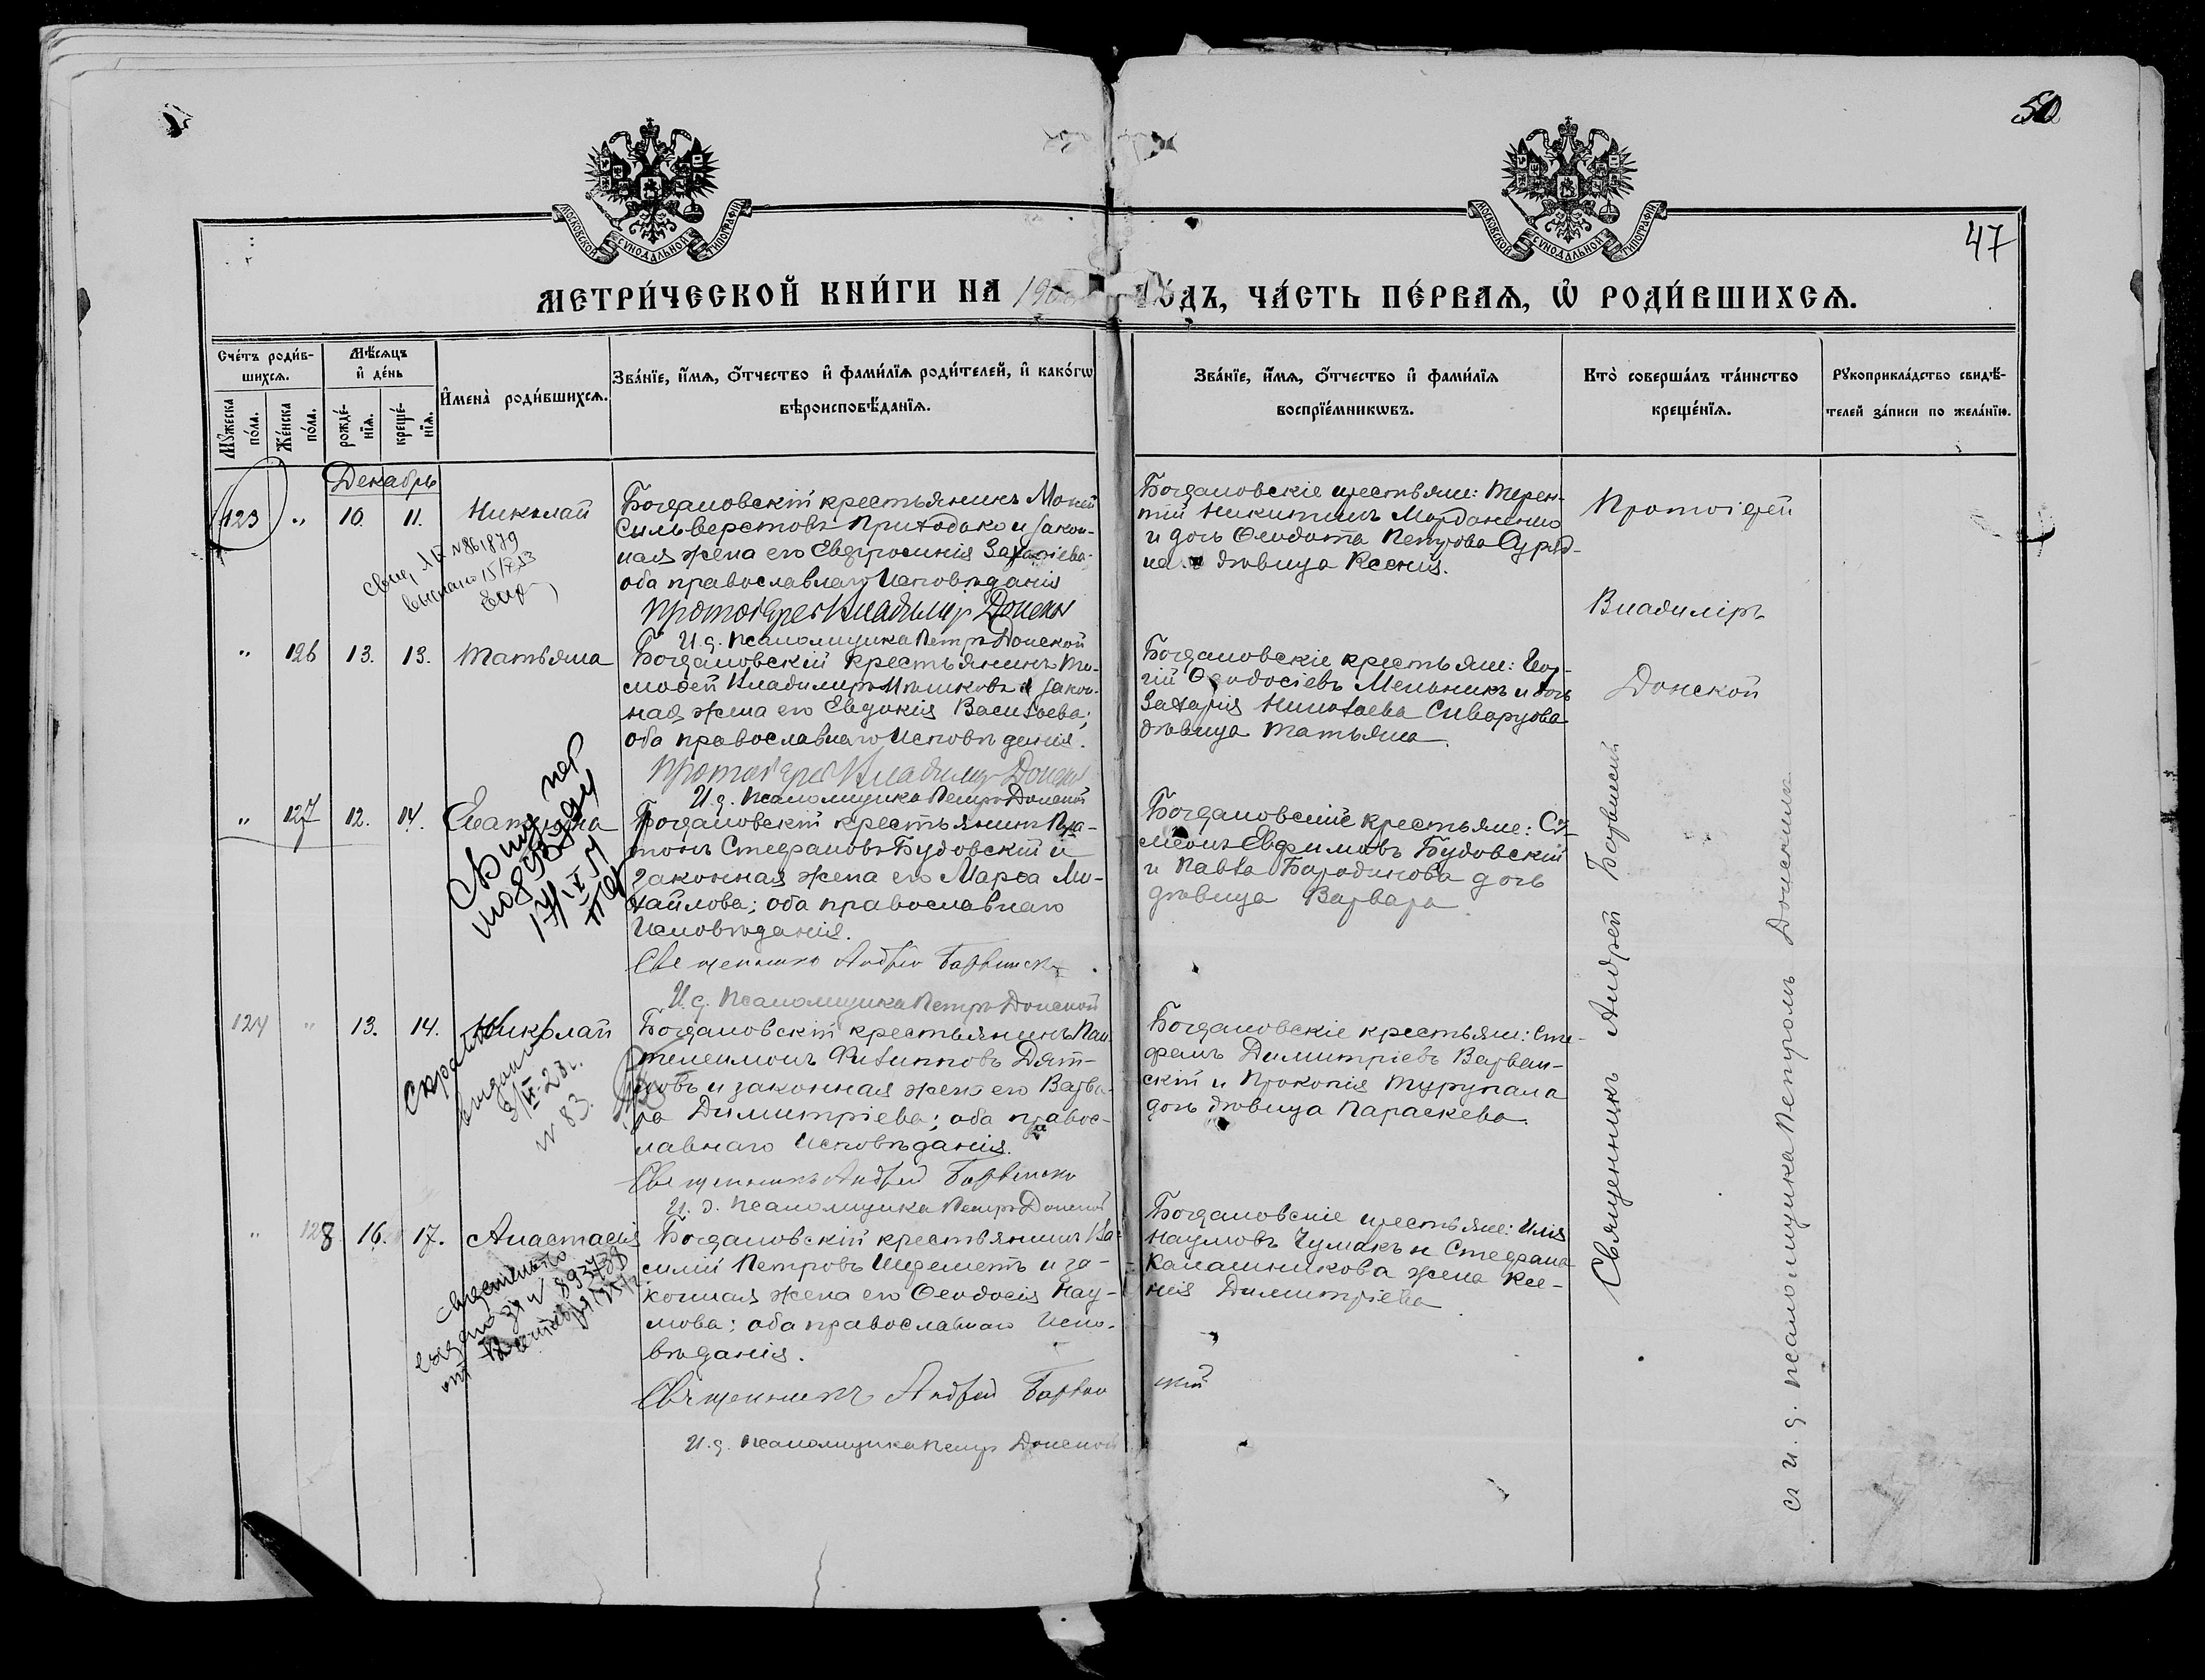 50
47
МОСКОВСКОЙ СѴНОДАЛЬНОЙ ТИПОГРАФІИ
МОСКОВСКОЙ СѴНОДАЛЬНОЙ ТИПОГРАФІИ
МЕТРИ́ЧЕСКОЙ КНИ́ГИ НА
ГО́ДЪ, ЧА́СТЬ ПЕ́РВАѦ, Ѡ҆ РОДИ́ВШИХСѦ.
Сче́тъ роди́в-
шихсѧ.
Мꙋжеска по́ла.
Же́нска по́ла.
Мѣ́сѧцъ
и҆ де́нь
рожде́-
нїѧ.
креще́-
нїѧ.
И҆мена̀ роди́вшихсѧ.
Зва́нїе, и҆́мѧ, ѻ҆́тчество и҆ фами́лїѧ роди́телей, и҆ како́гѡ
вѣроисповѣ́данїѧ.
Зва́нїе, и҆́мѧ, ѻ҆́тчество и҆ фами́лїѧ
воспрїе́мникѡвъ.
Кто̀ соверша́лъ та́инство
креще́нїѧ.
Рꙋкоприкла́дство свидѣ́-
телей за́писи по жела́нїю.
Декабрь
123 " 10. 11. Николай
Богдановскій крестьянинъ Мокей
Сильверстовъ Приходько и закон-
ная жена его Евдросинія Захаріева;
оба православнаго исповѣданія
Протоіерей Владиміръ Донской
И. д. псаломщика Петръ Донской
Богдановскіе крестьяне: Терен-
тій Никитинъ
и дочь Ѳеодота Петрова
на дѣвица Ксенія.
Протоіерей
Владиміръ
Донской
" 126 13. 13. Татьяна
Богдановскій крестьянинъ Ти-
моѳей Владиміръ Мѣшковъ и закон-
ная жена его Евдокія Васильева;
оба православнаго исповѣданія.
Протоіерей Владиміръ Донской
И. д. псаломщика Петръ Донской
Богдановскіе крестьяне: Геор-
гій Ѳеодосіевъ Мельникъ и дочь
Захарія Николаева
дѣвица Татьяна
" 127 12. 14. Екатерина
Богдановскій крестьянинъ Пла-
тонъ Стефановъ Будовскій и
законная жена его Марѳа Ми-
хайлова; оба православнаго
исповѣданія.
Священникъ Андрей Барвинскій
И. д. псаломщика Петръ Донской
Богдановскіе крестьяне: Си-
меонъ Евфимовъ Будовскій
и Павла Бородинова дочь
дѣвица Варвара
124 " 13. 14. Николай
выдан
№ 83.
Богдановскій крестьянинъ Пан-
телеимонъ Филипповъ Дят-
ловъ и законная жена его Варва-
ра Димитріева; оба правос-
лавнаго исповѣданія.
Священникъ Андрей Барвинскій
И. д. псаломщика Петръ Донской
Богдановскіе крестьяне: Сте-
фанъ Димитріевъ Варвин-
скій и Прокопія Турупала
дочь дѣвица Параскева.
" 128 16. 17. Анастасія
Богдановскій крестьянинъ Ва-
силій Петровъ Шереметъ и за-
конная жена его Ѳеодосія Нау-
мова; оба православнаго испо-
вѣданія.
Священникъ Андрей Барвинскій
И. д. псаломщика Петръ Донской
Богдановскіе крестьяне: Илія
Наумовъ Чумакъ и Стефана
Калашникова жена Ксе-
нія Димитріева
Священникъ Андрей Барвинскій
съ и. д. псаломщика Петромъ Донскимъ